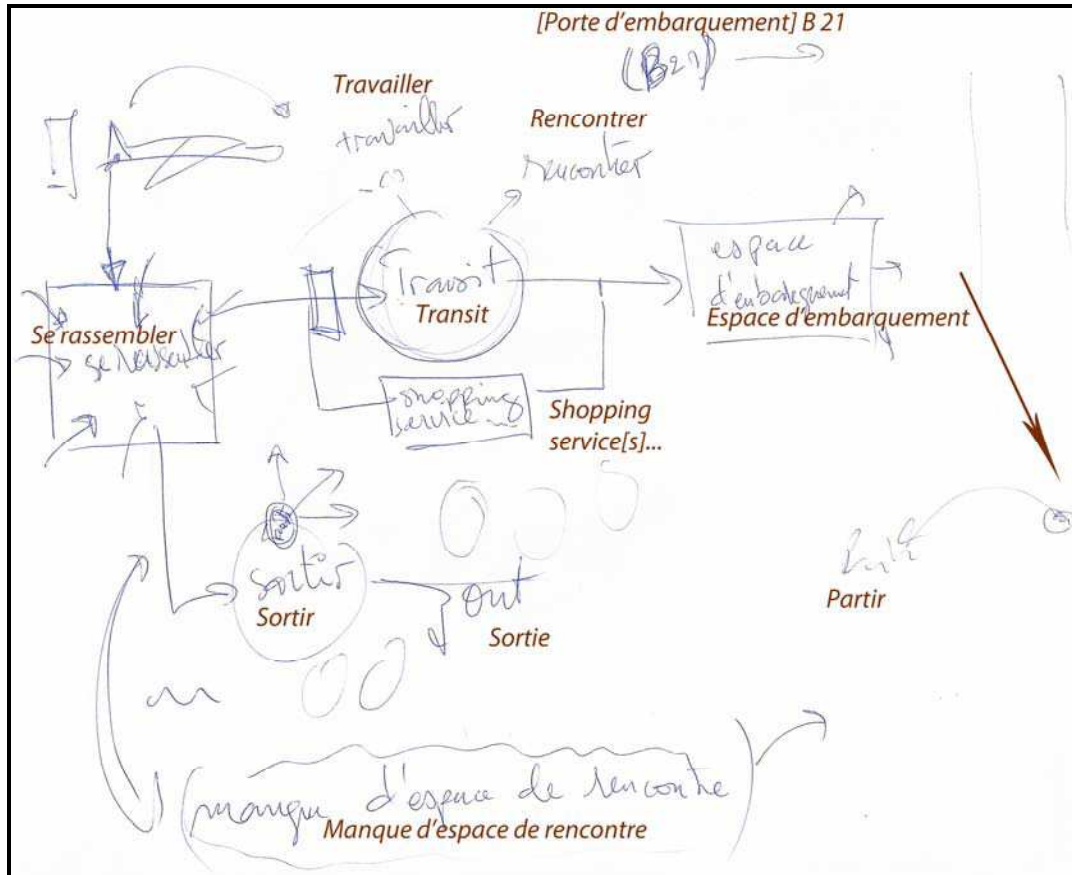 [Porte d'embarquement] B 21
(B21)
Travailler
travailler
Rencontrer
rencontrer
Transit
Transit
espace
d'embarquement
Espace d'embarquement
Se rassembler
se rassembler
shopping
service...
Shopping
service[s]...
sortir
Sortir
out
Sortie
Partir
Partir
manque d'espace de rencontre
Manque d'espace de rencontre